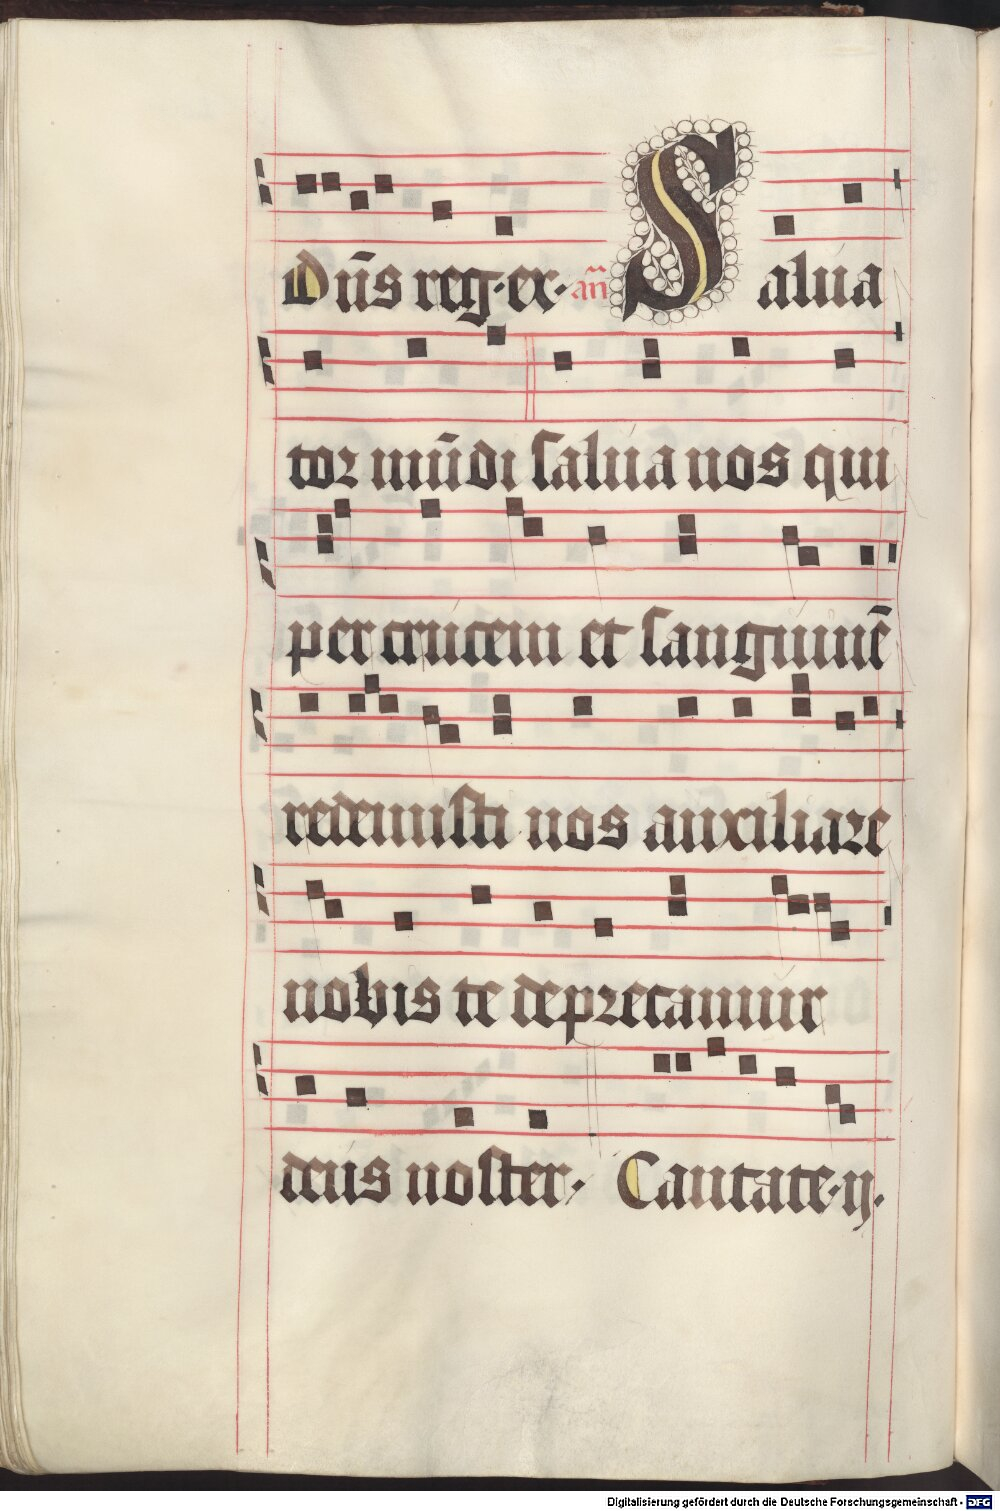 Dn̄s reg·ex· an̄ Salua
tor mūdi salua nos qui
per crucem et sanguinē
redemisti nos auxiliare
nobis te deprecamur
deus noster· Cantate·ij·
Digitalisierung gefördert durch die Deutsche Forschungsgemeinschaft - DFG